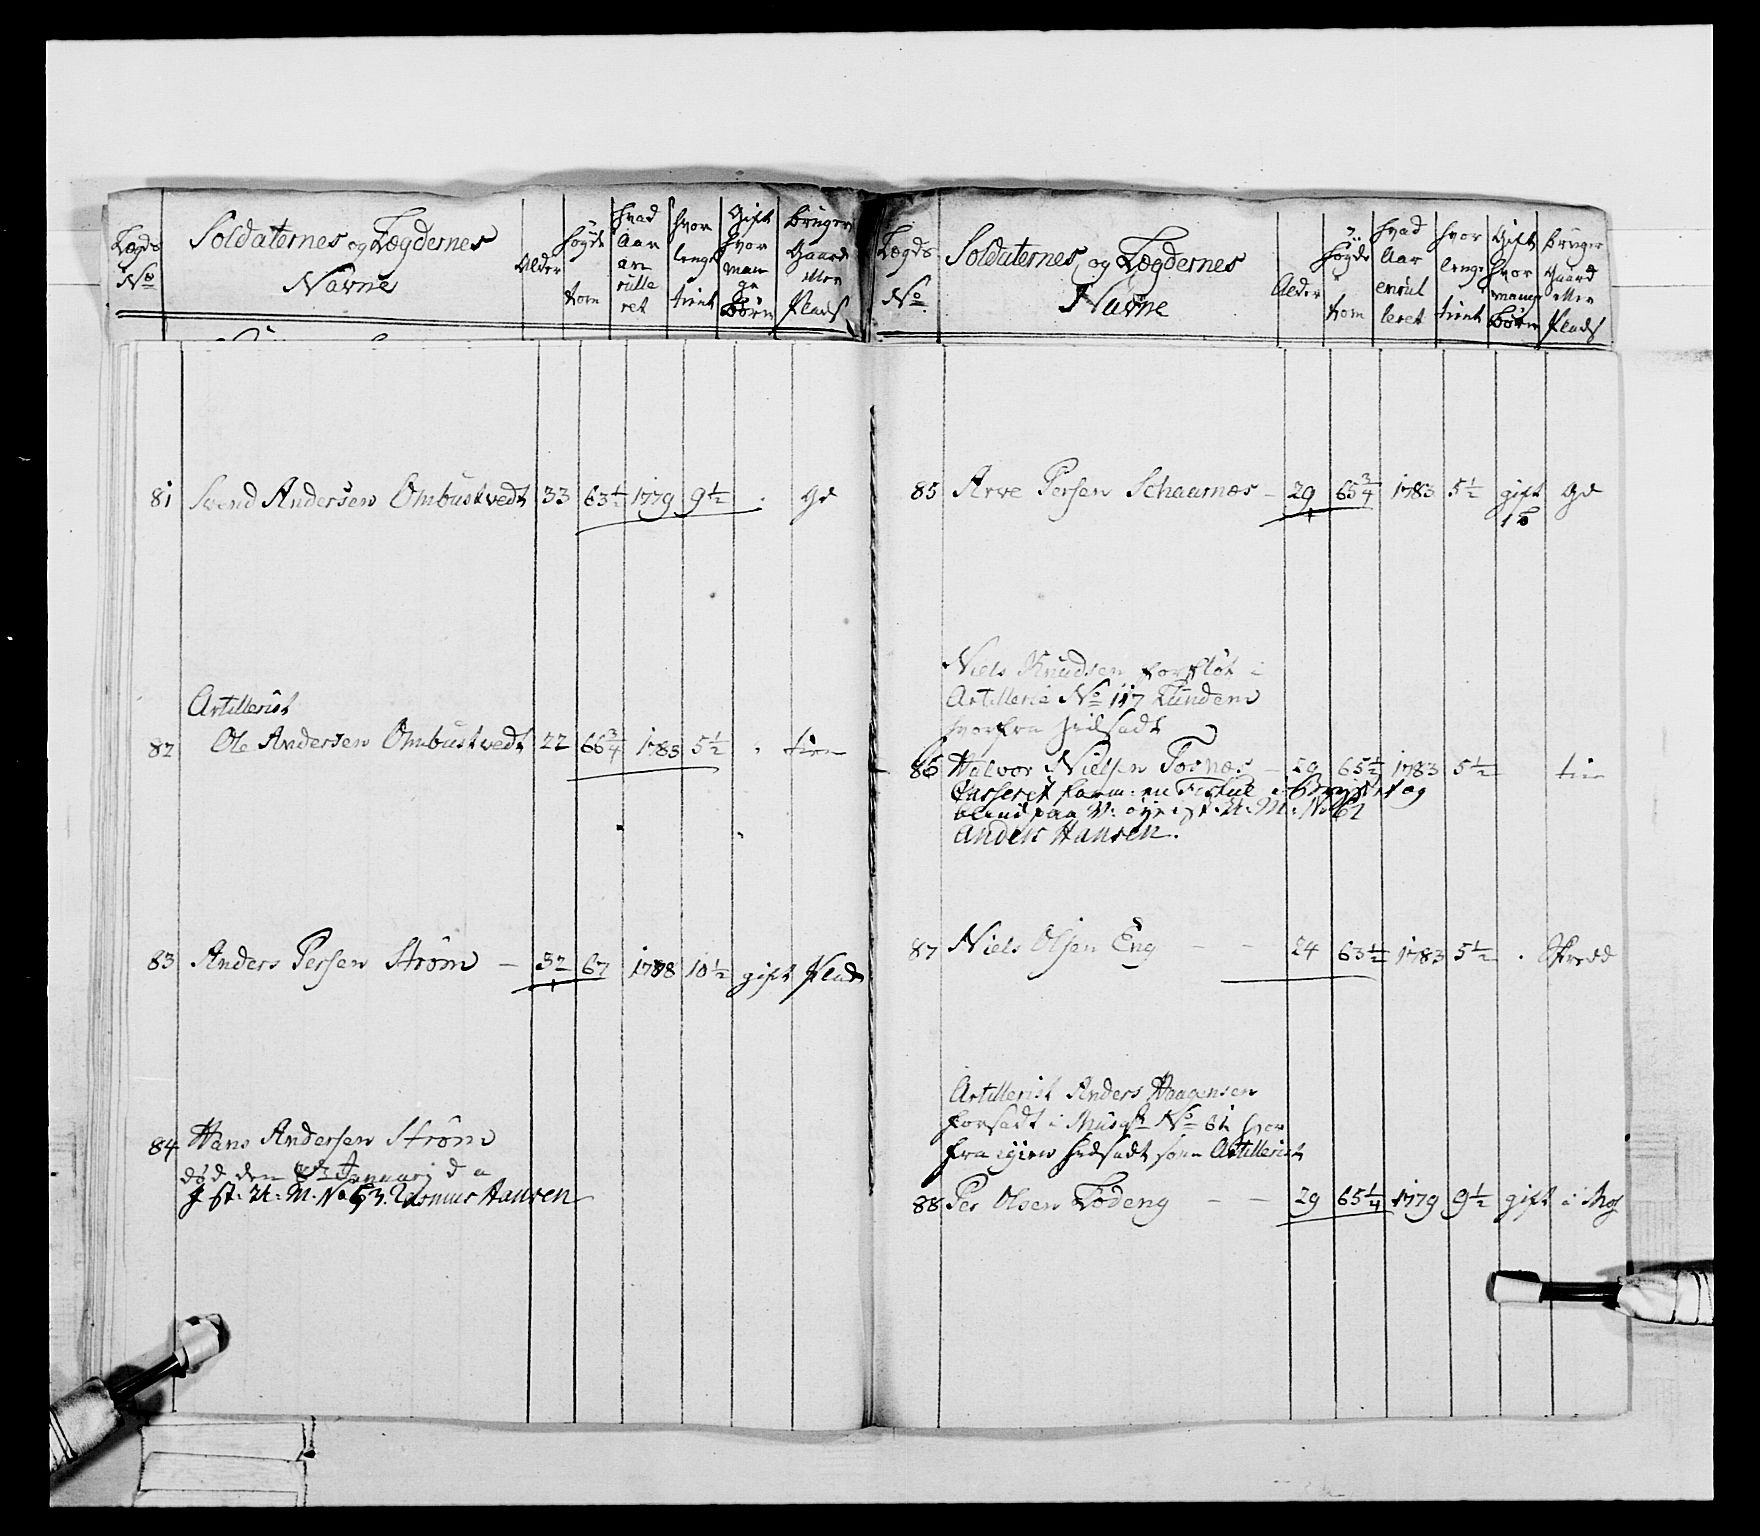 Lægds No Soldaternes og Lægdernes Navne Alder Høyde tom hvad Aar enrulle ret hvor lenge tient Gift hvor man ge Børn bruger Gaard eller Plads
81 Svend Andersen Ombustvedt 33 63½ 1779 9½ . Gd
Artillerist
82 Ole Andersen Ombustvedt 22 66¾ 1783 5½ . tien
83 Anders Persen Strøm — 32 67 1788 10½ gift Plads
84 Hans Andersen Strøm
død den Januarj
I st: U: M: No 53. Rasmus Hansen
Lægds No. Soldaternes og Lægdernes Navne Alder Høyde tom hvad Aar enrul leret hvor lenge tient Gift hvor mange Børn bruger Gaard eller Plads
85 Arve Persen Schaarnæs - 29 65¾ 1783 5½ gift Gd
1 b
Niels Knudsen forfløt i
Artillerie No 117 Lunden
hvorfra hidsadt
86 Halvor Nielsen Tosnæs - 29 65½ 1783 5½ tien
Casseret form: en Fistul i og
blind paa V: øye i st: U: M: No 62
Anders Hansen.
87 Niels Olsen Eng - - 24 63½ 1783 5½ . Skredd
Artillerist Anders Haagensen
forsadt i Musqt No 61 hvor
fra igien hidsadt som Artillerist
88 Per Olsen Lodeng - - 29 65¼ 1779 9½ gift i